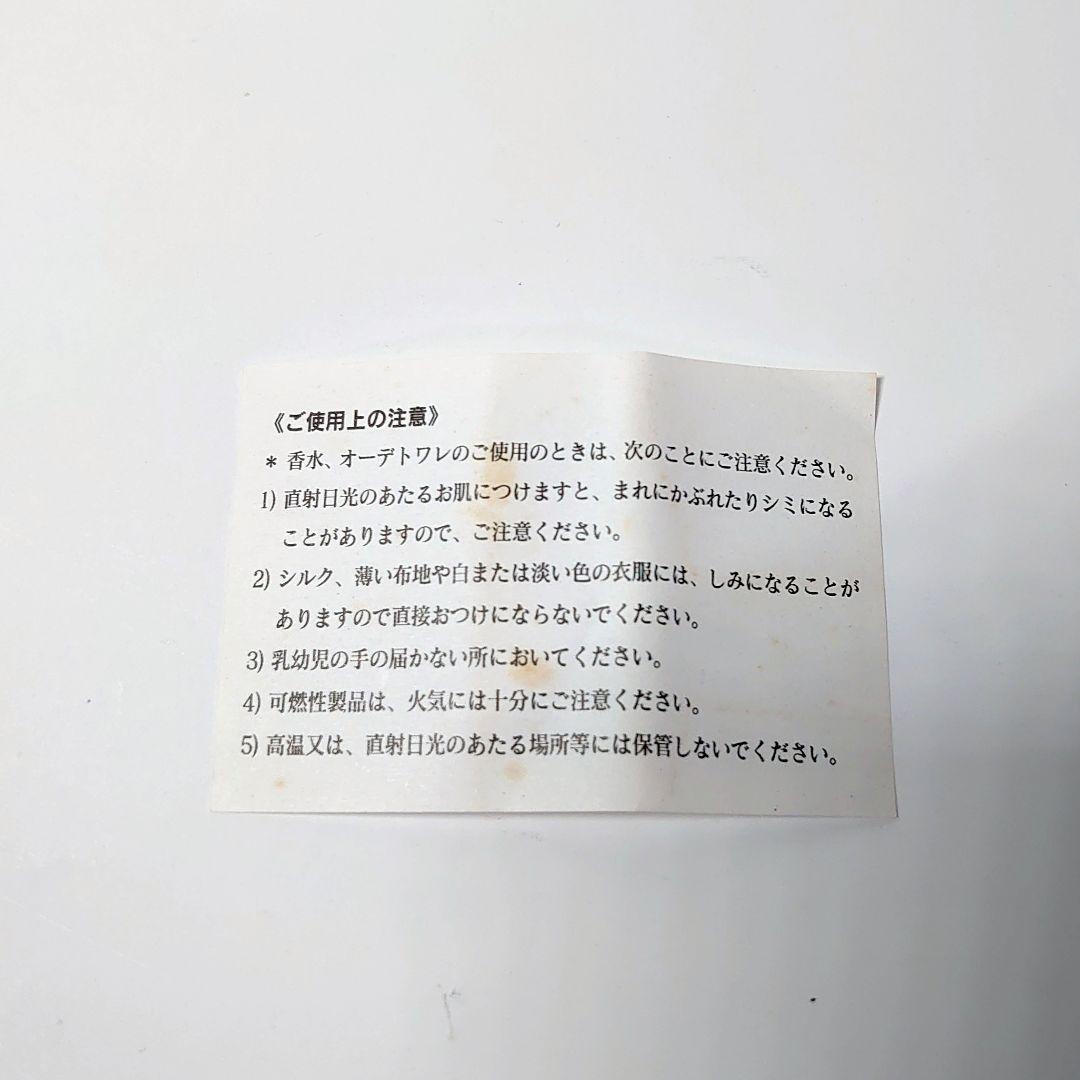 《ご使用上の注意》
＊ 香水、オーデトワレのご使用のときは、次のことにご注意ください。
1) 直射日光のあたるお肌につけますと、まれにかぶれたりシミになる
ことがありますので、ご注意ください。
2) シルク、薄い布地や白または淡い色の衣服には、しみになることが
ありますので直接おつけにならないでください。
3) 乳幼児の手の届かない所においてください。
4) 可燃性製品は、火気には十分にご注意ください。
5) 高温又は、直射日光のあたる場所等には保管しないでください。